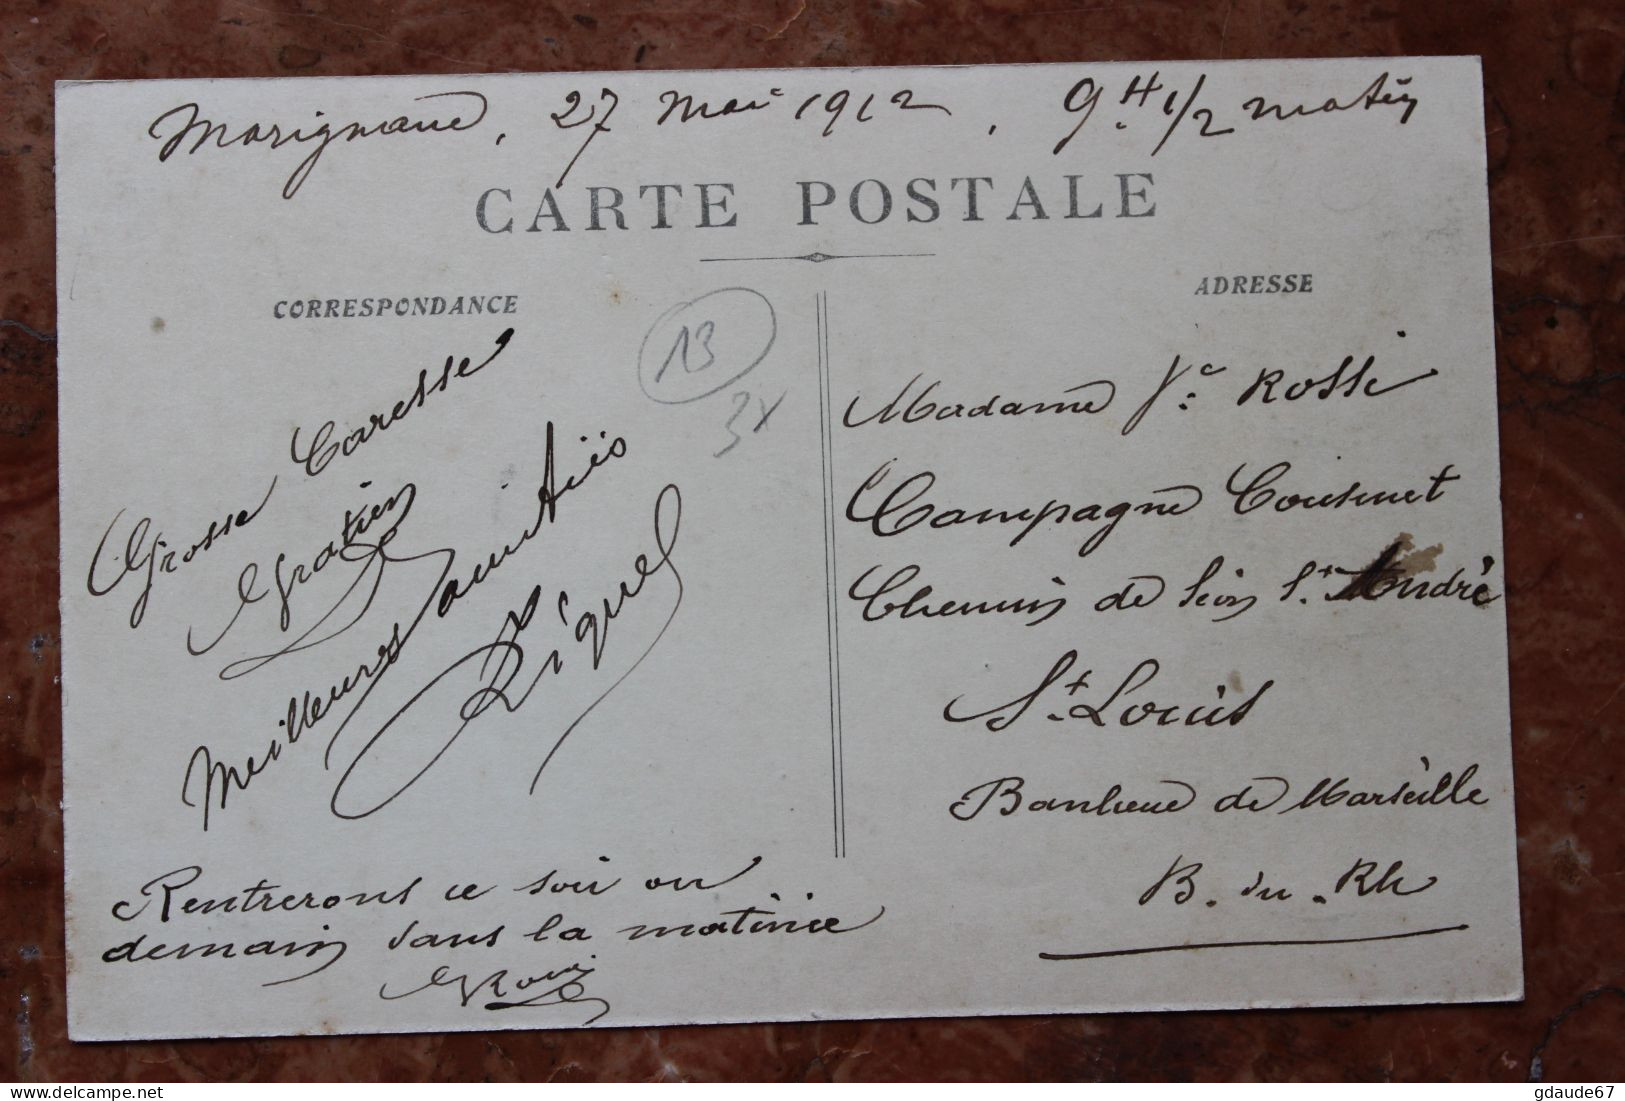 Marignane, 27 mai 1912, 9.H 1/2 matin
CARTE POSTALE
CORRESPONDANCE
ADRESSE
13
3x
Grosse Caresse
Gratien
Meilleures amitiés
Riquel
Rentrerons ce soir ou
demain dans la matinée
Madame Ve Rossi
Campagne Cousinet
Chemin de St. André
St. Louis
Banlieue de Marseille
B. du. Rh
gdaude67